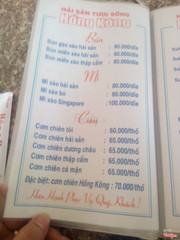 HẢI SẢN TƯƠI SỐNG
Hồng Kông
Bún
Bún gạo xào hải sản : 80.000/dĩa
Bún miến xào hải sản : 80.000/dĩa
Bún miến xào thập cẩm : 80.000/dĩa
Mì
Mì xào hải sản : 80.000/dĩa
Mì xào bò : 80.000/dĩa
Mì xào Singapore : 100.000/dĩa
Cơm
Cơm chiên tỏi : 60.000/thố
Cơm chiên hải sản : 65.000/thố
Cơm chiên dương châu : 65.000/thố
Cơm chiên thập cẩm : 65.000/thố
Cơm chiên cá mặn : 65.000/thố
Đặc biệt: cơm chiên Hồng Kông : 70.000/thố
Hân Hạnh Phục Vụ Quý Khách !